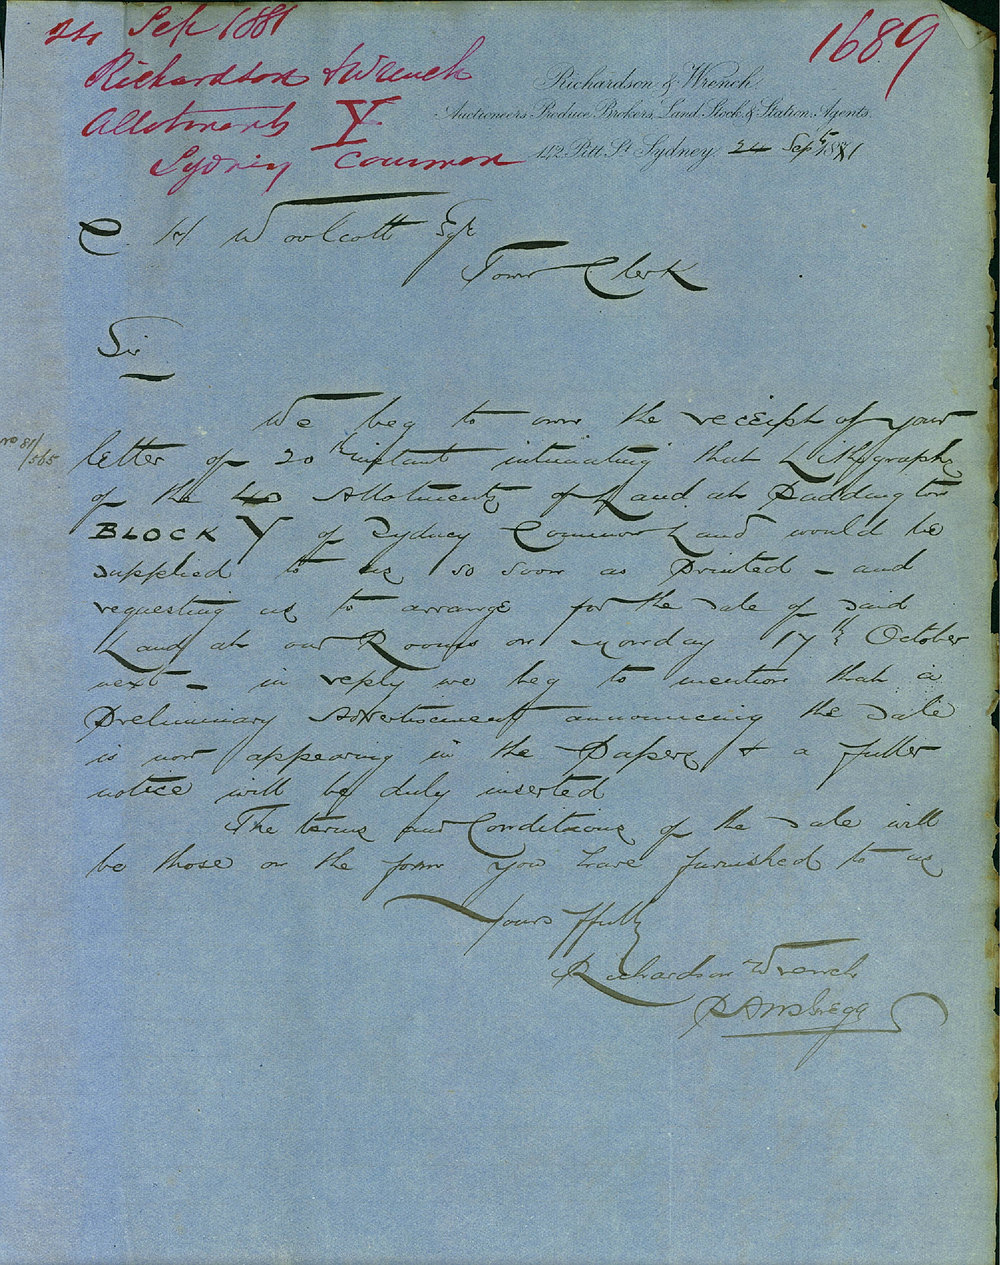 24 Sep 1881
Richardson & Wrench
Allotments Y
Sydney Common
1689
Richardson & Wrench
Auctioneers Produce Brokers, Land, Stock & Station Agents.
142 Pitt St. Sydney, 24 Sept 1881
C. H Woolcott Esqr
Town Clerk
Sir
We beg to own the receipt of your
No 81/565
letter of 20th instant intimating that Lithographs
of the 40 Allotments of Land at Paddington
BLOCK Y of Sydney Common Land would be
supplied to us so soon as Printed – and
requesting us to arrange for the sale of said
Land at our Rooms on Monday 17th October
next – in reply we beg to mention that a
Preliminary Advertisement announcing the Sale
is now appearing in the Papers & a fuller
notice will be duly inserted
The terms and Conditions of the sale will
be those on the form you have furnished to us
Yours ffully
Richardson Wrench